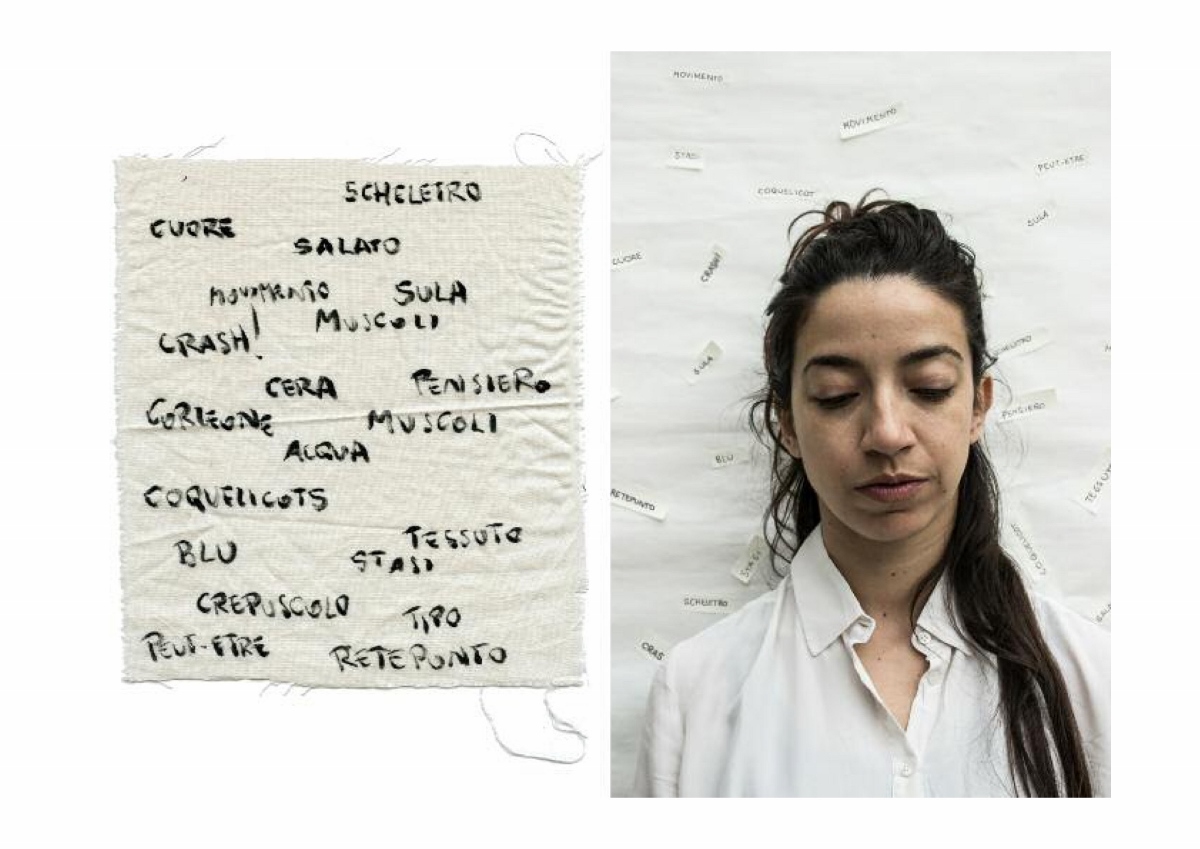 SCHELETRO
CUORE
SALATO
MOVIMENTO SULA
MUSCOLI
CRASH!
CERA PENSIERO
CORLEONE MUSCOLI
ACQUA
COQUELICOTS
TESSUTO
BLU STASI
CREPUSCOLO TIPO
PEUT-ETRE RETEPUNTO
MOVIMENTO
MOVIMENTO
STASI
PEUT-ETRE
COQUELICOT
SULA
CUORE
CRASH!
SCHELETRO
SULA
PENSIERO
BLU
RETEPUNTO
TESSUT
COQUELICOT
STASI
SCHELETRO
SALA
CRAS